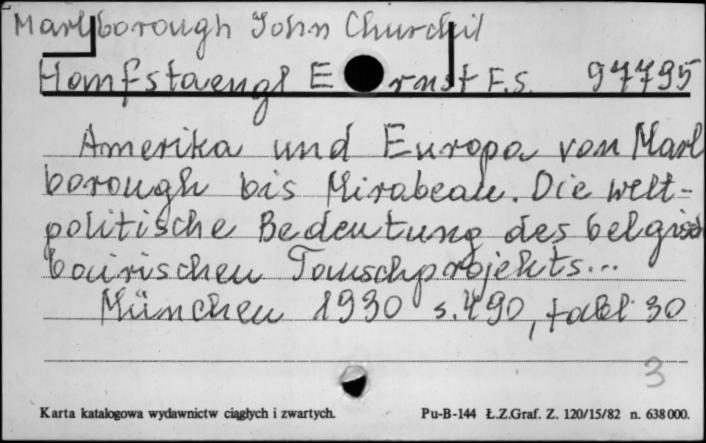 Marlborough John Churchil
Homfstaengl Ernst F.S. 97795
Amerika und Europa von Marl
borough bis Mirabeau. Die welt-
politische Bedeutung des belgisch
bairischen Tauschprojekts...
München 1930 s. 490, tabl 30
3
Karta katalogowa wydawnictw ciągłych i zwartych. Pu-B-144 Ł.Z.Graf. Z. 120/15/82 n. 638000.